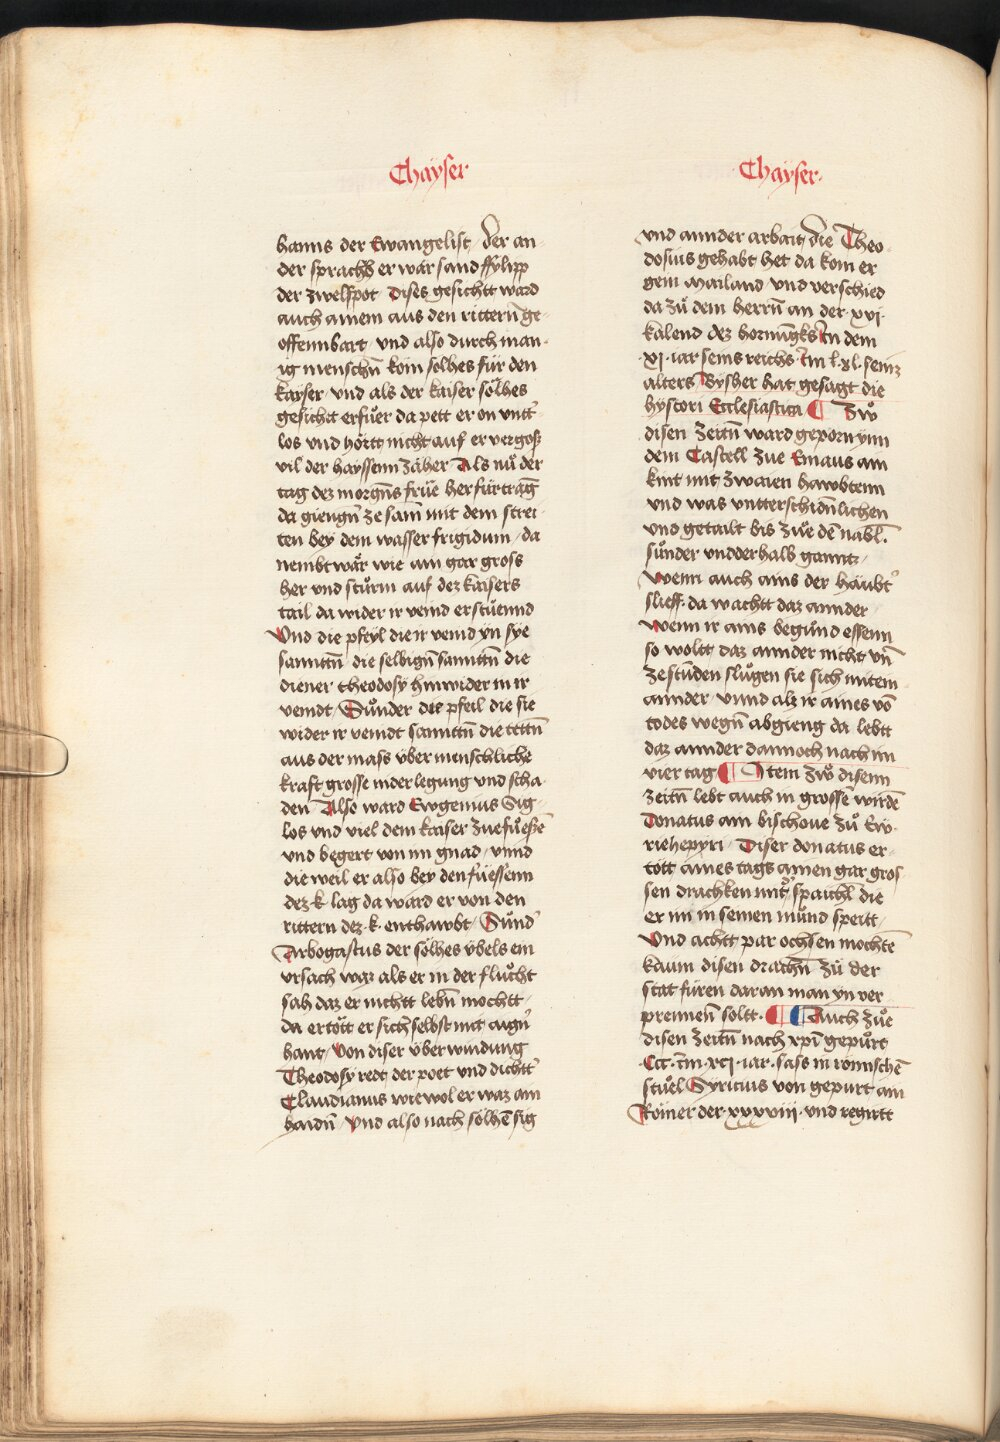 Chayser
hanns der Ewangelist / der an
der sprachh er wär sand ffylipp
der zwelfpot Dises gesichtt ward
auch ainem aus den rittern̄ ge
offennbart / und also durch man
ig menschn̄ kom solhes für den
kayser / und als der kaiser sölhes
gesicht erfuer da pett er on untt̉
los und hörtt nicht auf er vergoss
vil der hayssenn zäher Als nů der
tag dez morgn̄s früe herfür trāg
da giengn̄ zesam̄ mit dem strei
ten bey dem wasser frigidum / da
nembt wär wie ain gar gross
her und stürm auf dez kaisers
tail da wider ir veind erstuennd
Und die pfeyl die ir veind yn sye
sanntn̄ die selbign̄ sanntn̄ die
diener theodosy hinwider in ir
veindt / Sůnder die pfeil die sie
wider ir veindt sanntn̄ die tettn̄
aus der mass über menschliche
kraft grosse niderlegung und scha
den Also ward Ewgenius Sig
los und viel dem kaiser zue fuessē
und begert von im gnad / unnd
die weil er also bey den füessenn
dez k lag da ward er von den
rittern dez .k. enthawbt / Sůnd̉
Arbogastus der sölhes übels ein
ursach waz als er in der flucht
sah daz er nichtt lebn̄ mochtt /
da ertött er sich selbst mit aign̉
hant / Von diser überwindung
Theodosy redt der poet und dichtt̉
Claudianus wie wol er waz ain
haidn̄ / Und also nach solhē sig
Chayser
und annder arbait die Theo
dosius gehabt het da kom er
gein Mailand / und verschied
da zů dem herrn̄ an der .xvi.
kalend dez hornūgks In dem
.xi. iar seins reichs Im l. xl. seinz
alters / Bysher hat gesagt die
hystori Ecclesiastica ¶ Zẘ
disen zeitn̄ ward geporn ynn
dem Castell zue Emaus ain
kint mit zwaien hawbtenn
und was untterschidn̄lichen
und getailt bis zue dē nabl.
sünder undderhalb ganntz /
Wenn auch ains der häubt̉
slieff. da wachtt daz annder
Wenn ir ains begund essenn
so woltt daz annder nicht un̄
ze stunden slůgen sie sich mitein
annder / unnd alz ir aines vō
todes wegn̄ abgieng da lebtt
daz annder dannoch nach im
vier tag ¶ Item zẘ disenn
zeitn̄ lebt auch in grossē wirdē
Donatus ain bischove zů Ew
riehepyri / Diser donatus er
tött aines tags ainen gar gros
sen drachken mit̉ spaichl die
er im in seinen mund speitt /
Und achtt par ochsen mochtē
kaum disen drachn̄ zü der
stat füren daran man yn ver
prennen̄ soltt. ¶ ¶ Auch zue
disen zeitn̄ nach xp̄i gepurt
.CCC. Im. xci. iar. sass in römischē
stuel Syricius von gepurt ain
Römer der .xxxviii. und regirtt